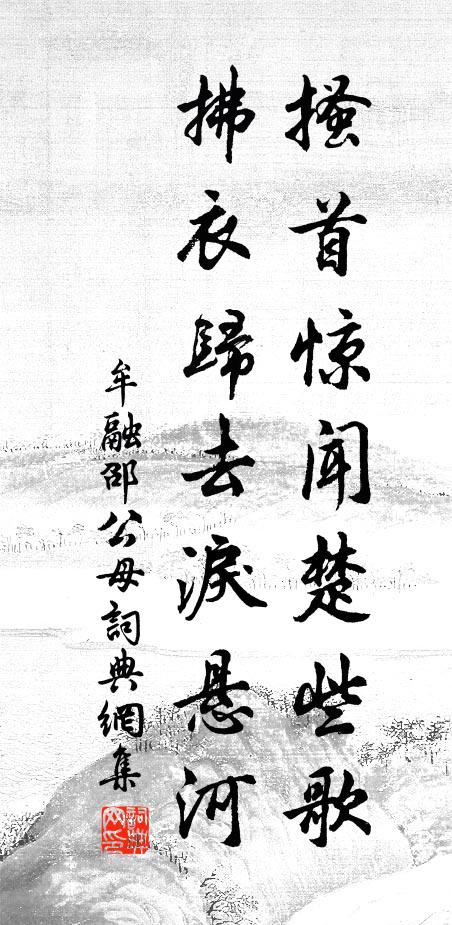 搔首惊闻楚些歌
拂衣歸去淚悬河
牟融邵公母詞典網集